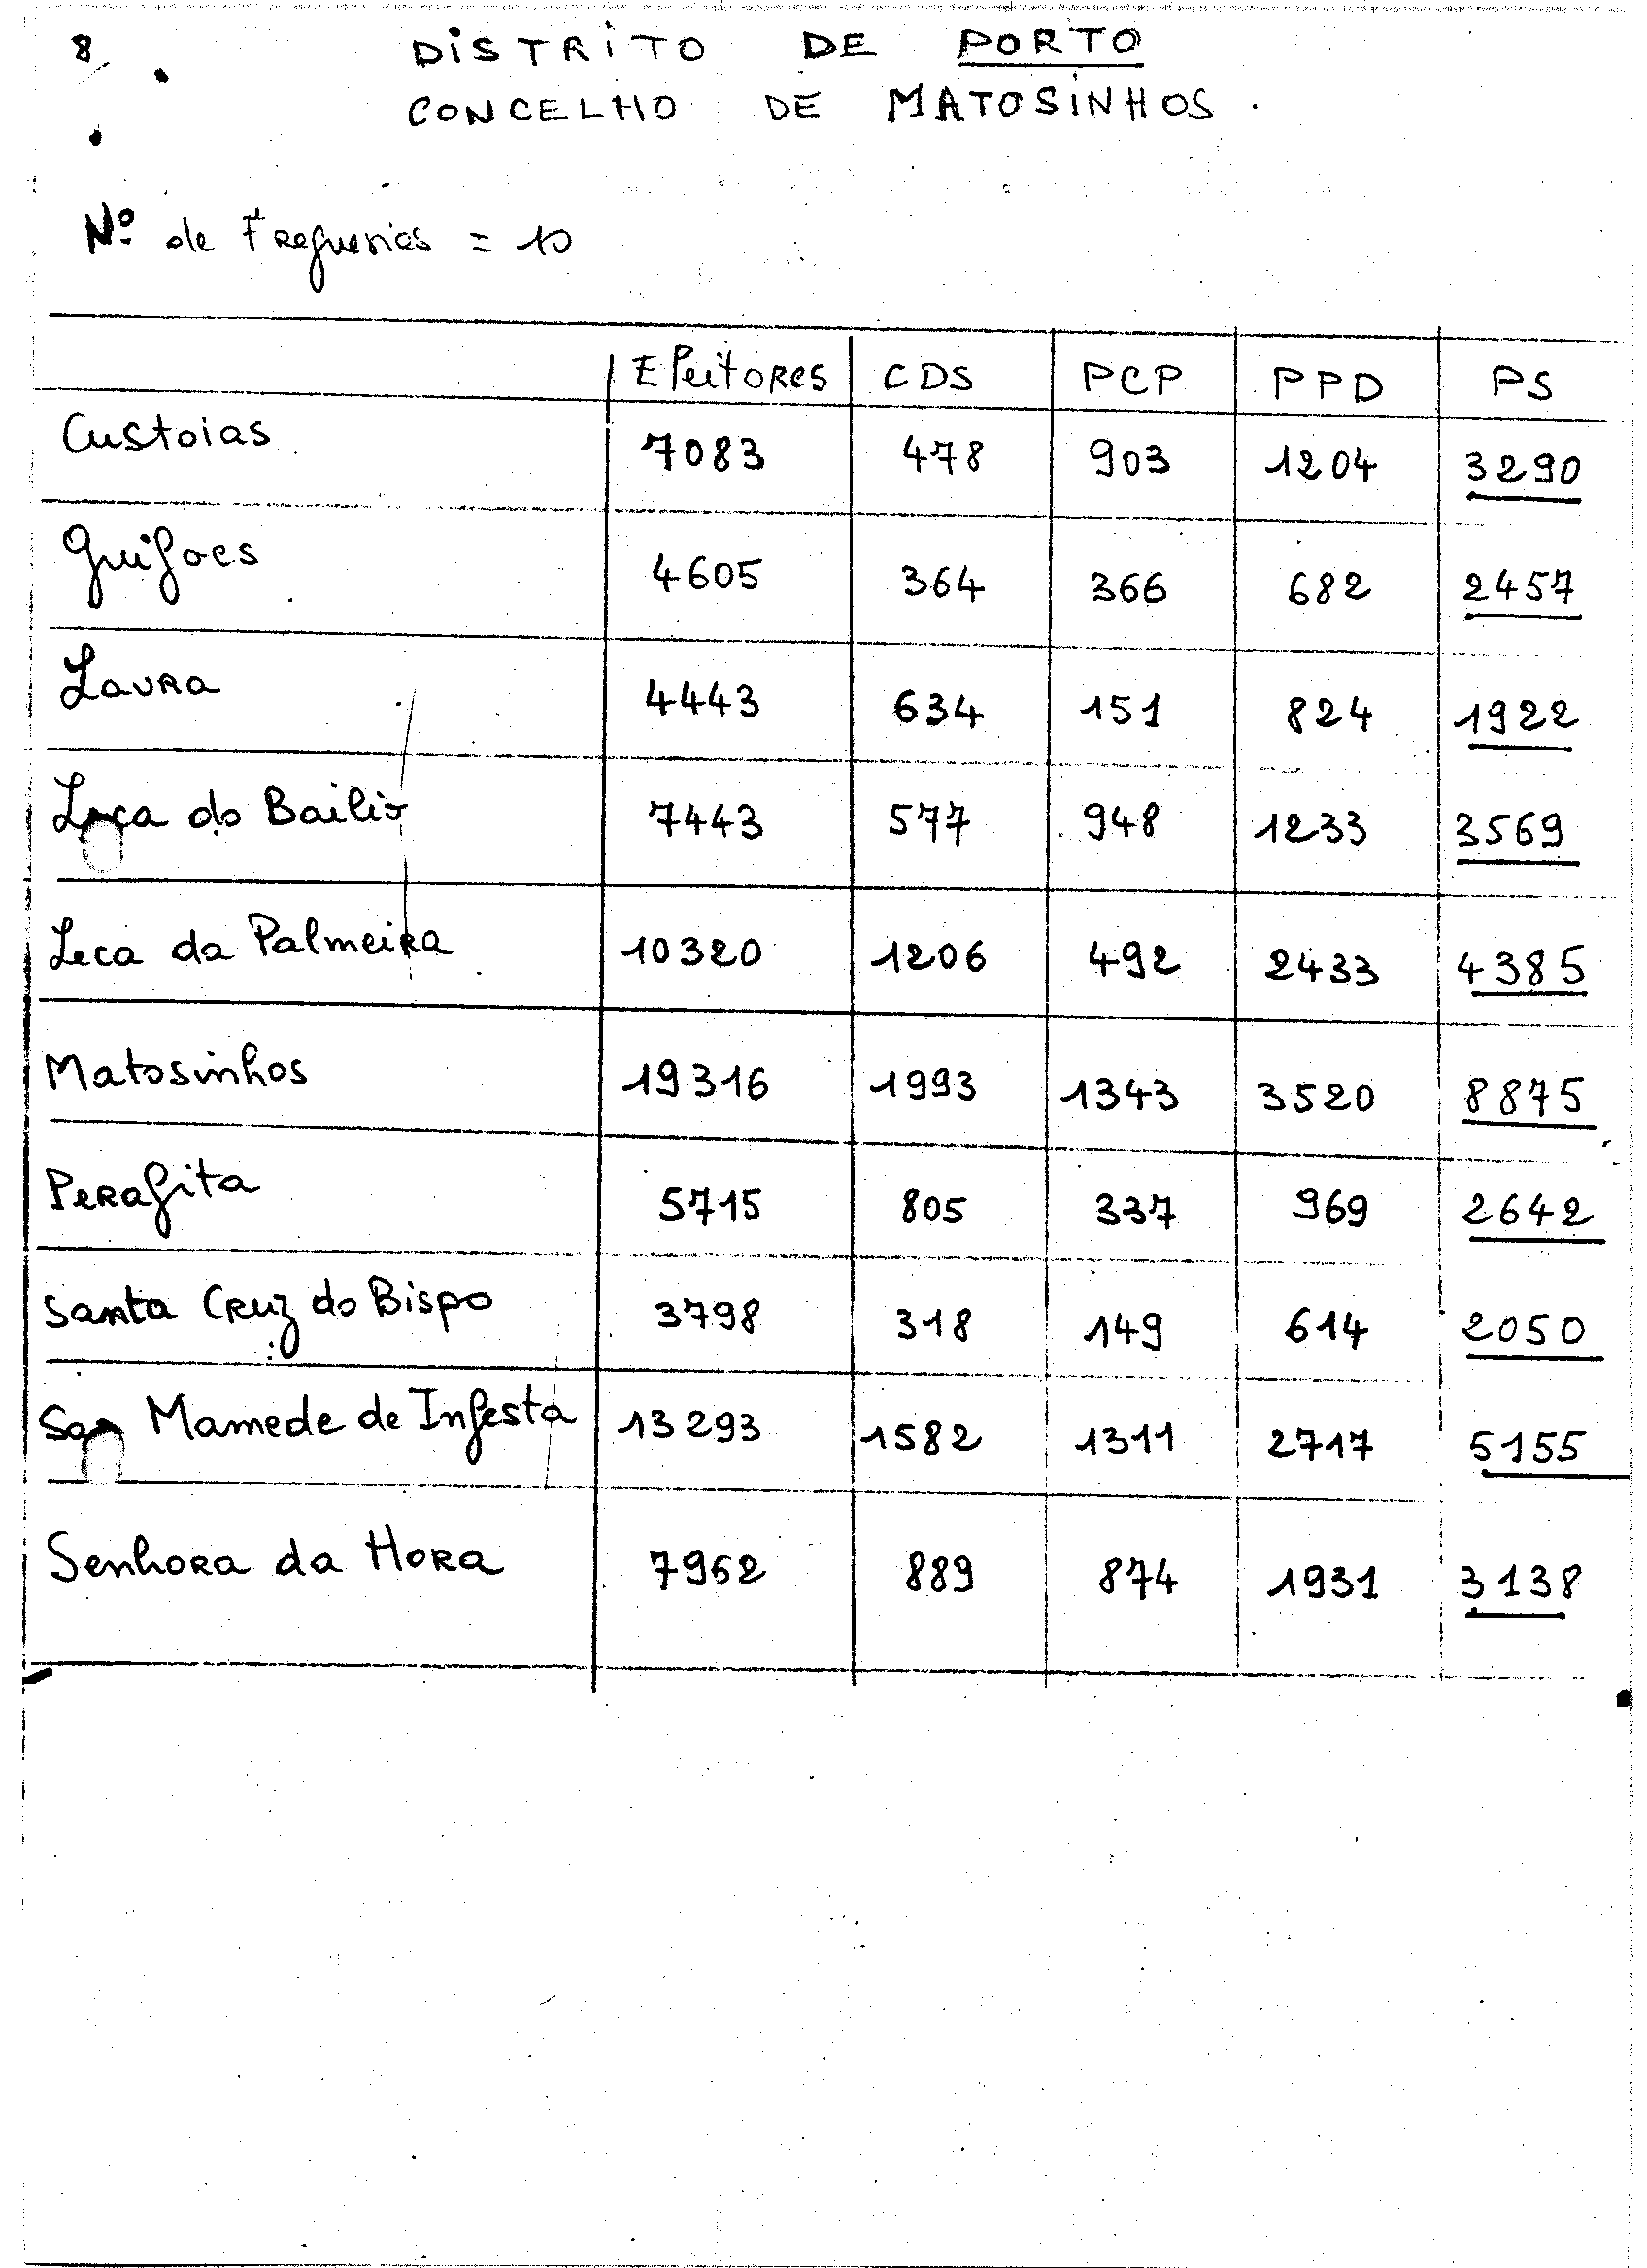 8
DISTRITO DE PORTO
CONCELHO DE MATOSINHOS.
Nº de Freguesias = 10
Eleitores CDS PCP PPD PS
Custoias 7083 478 903 1204 3290
Guifoes 4605 364 366 682 2457
Lavra 4443 634 151 824 1922
Leça do Bailio 7443 577 948 1233 3569
Leca da Palmeira 10320 1206 492 2433 4385
Matosinhos 19316 1993 1343 3520 8875
Perafita 5715 805 337 969 2642
Santa Cruz do Bispo 3798 318 149 614 2050
Sao Mamede de Infesta 13293 1582 1311 2717 5155
Senhora da Hora 7962 889 874 1931 3138